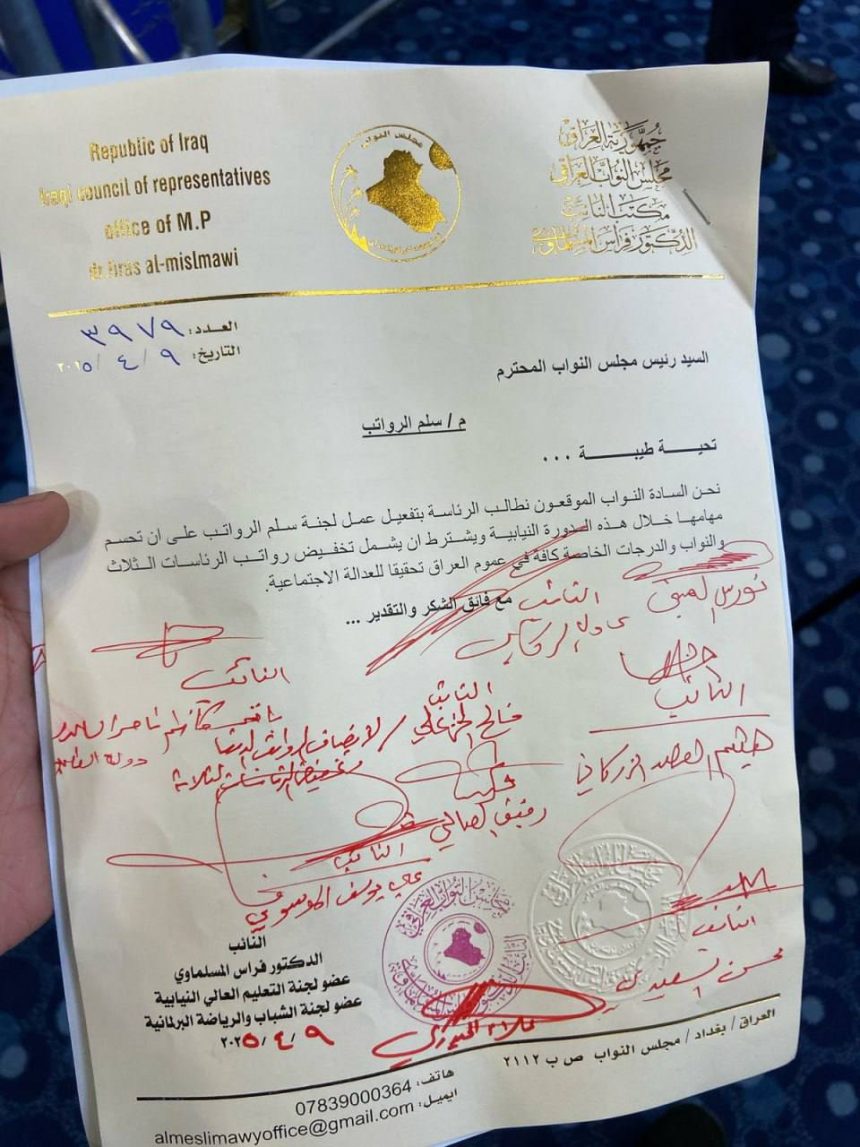 Republic of Iraq
Iraqi council of representatives
office of M.P
dr.firas al-mislmawi
مجلس النواب
جمهورية العراق
مجلس النواب العراقي
مكتب النائب
الدكتور فراس المسلماوي
العـدد: ٣٩٧٩
التاريخ: ٩ / ٤ / ٢٠٢٥
السيد رئيس مجلس النواب المحترم
م / سلم الرواتب
تحية طيبة ...
نحن السادة النواب الموقعون نطالب الرئاسة بتفعيل عمل لجنة سلم الرواتب على ان تحسم
مهامها خلال هذه الدورة النيابية ويشترط ان يشمل تخفيض رواتب الرئاسات الثلاث
والنواب والدرجات الخاصة كافة في عموم العراق تحقيقا للعدالة الاجتماعية.
مع فائق الشكر والتقدير ...
النائب
النائب
النائب
باقر كاظم ناصر
النائب
فالح الخزعلي
هيثم الزركاني
رفيق الصالحي
النائب
علي يوسف الموسوي
النائب
محسن السعيدي
مجلس النواب العراقي
النائب
الدكتور فراس المسلماوي
عضو لجنة التعليم العالي النيابية
عضو لجنة الشباب والرياضة البرلمانية
٩ / ٤ / ٢٠٢٥
العراق / بغداد / مجلس النواب ص ب ٢١١٢
هاتف: 07839000364
ايميل: almeslimawyoffice@gmail.com